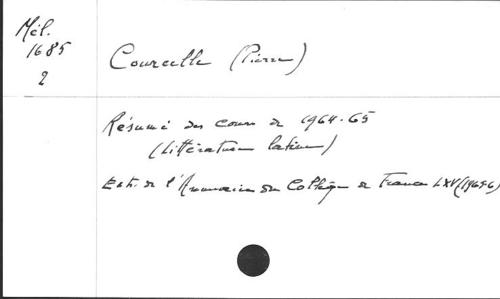 Mél.
1685
2
Courcelle (Pierre)
Résumé des cours de 1964-65
(Littérature latine)
Extr. de l'Annuaire du Collège de France LXV (1965-6)